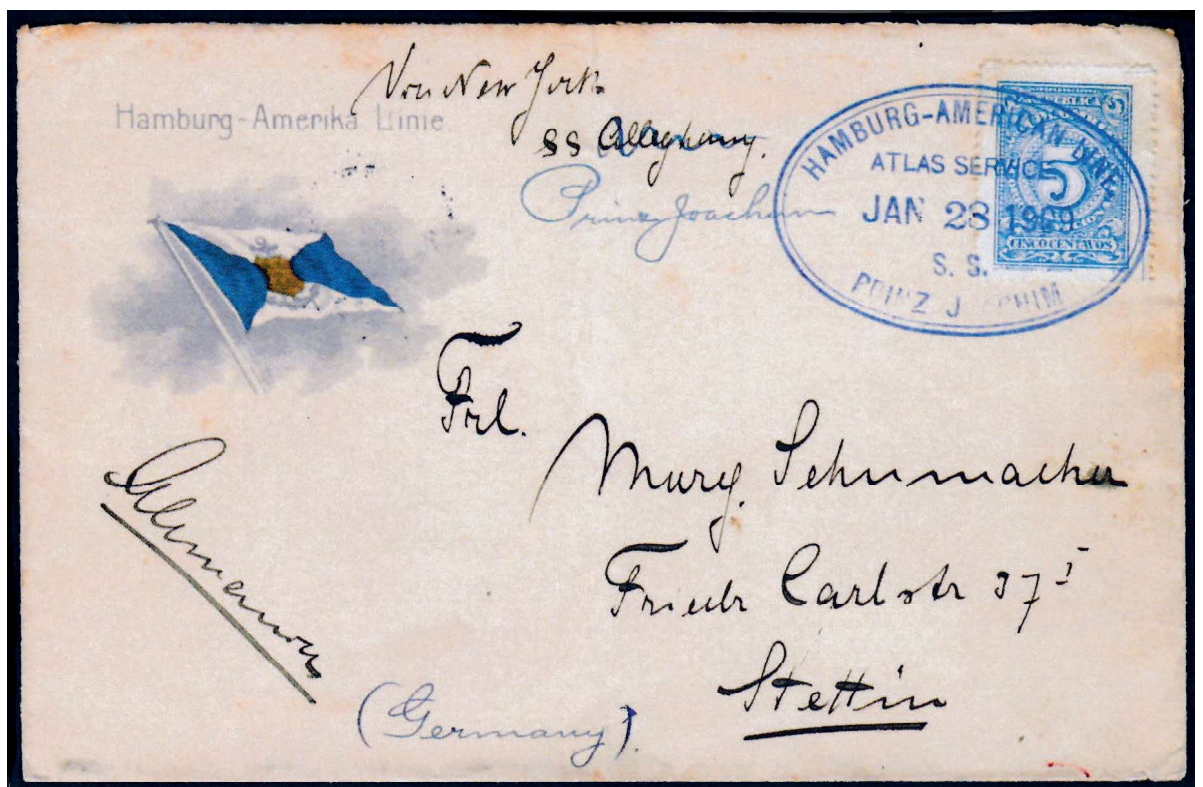 Hamburg-Amerika Linie
New York
SS Alleghany.
Prinz Joachim
HAMBURG-AMERICAN LINE
ATLAS SERVICE
JAN 28 1909
S. S.
PRINZ J ACHIM
REPUBLICA
5
CINCO CENTAVOS
Frl.
Marg. Schumacher
Friedr Carlstr 37 I
Stettin
Alemania
(Germany).